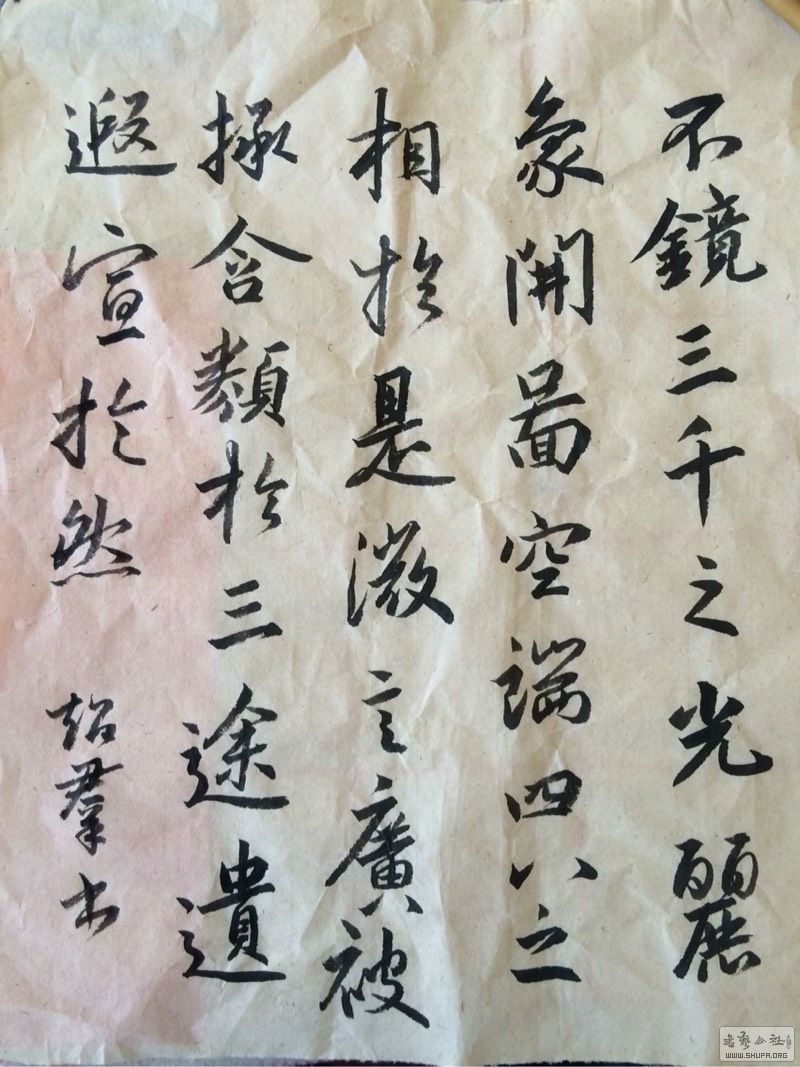 不鏡三千之光麗
象開圖空端四八之
相於是微言廣被
拯含類於三途遺
遐宣於然
超群书
书艺公社
WWW.SHUFA.ORG